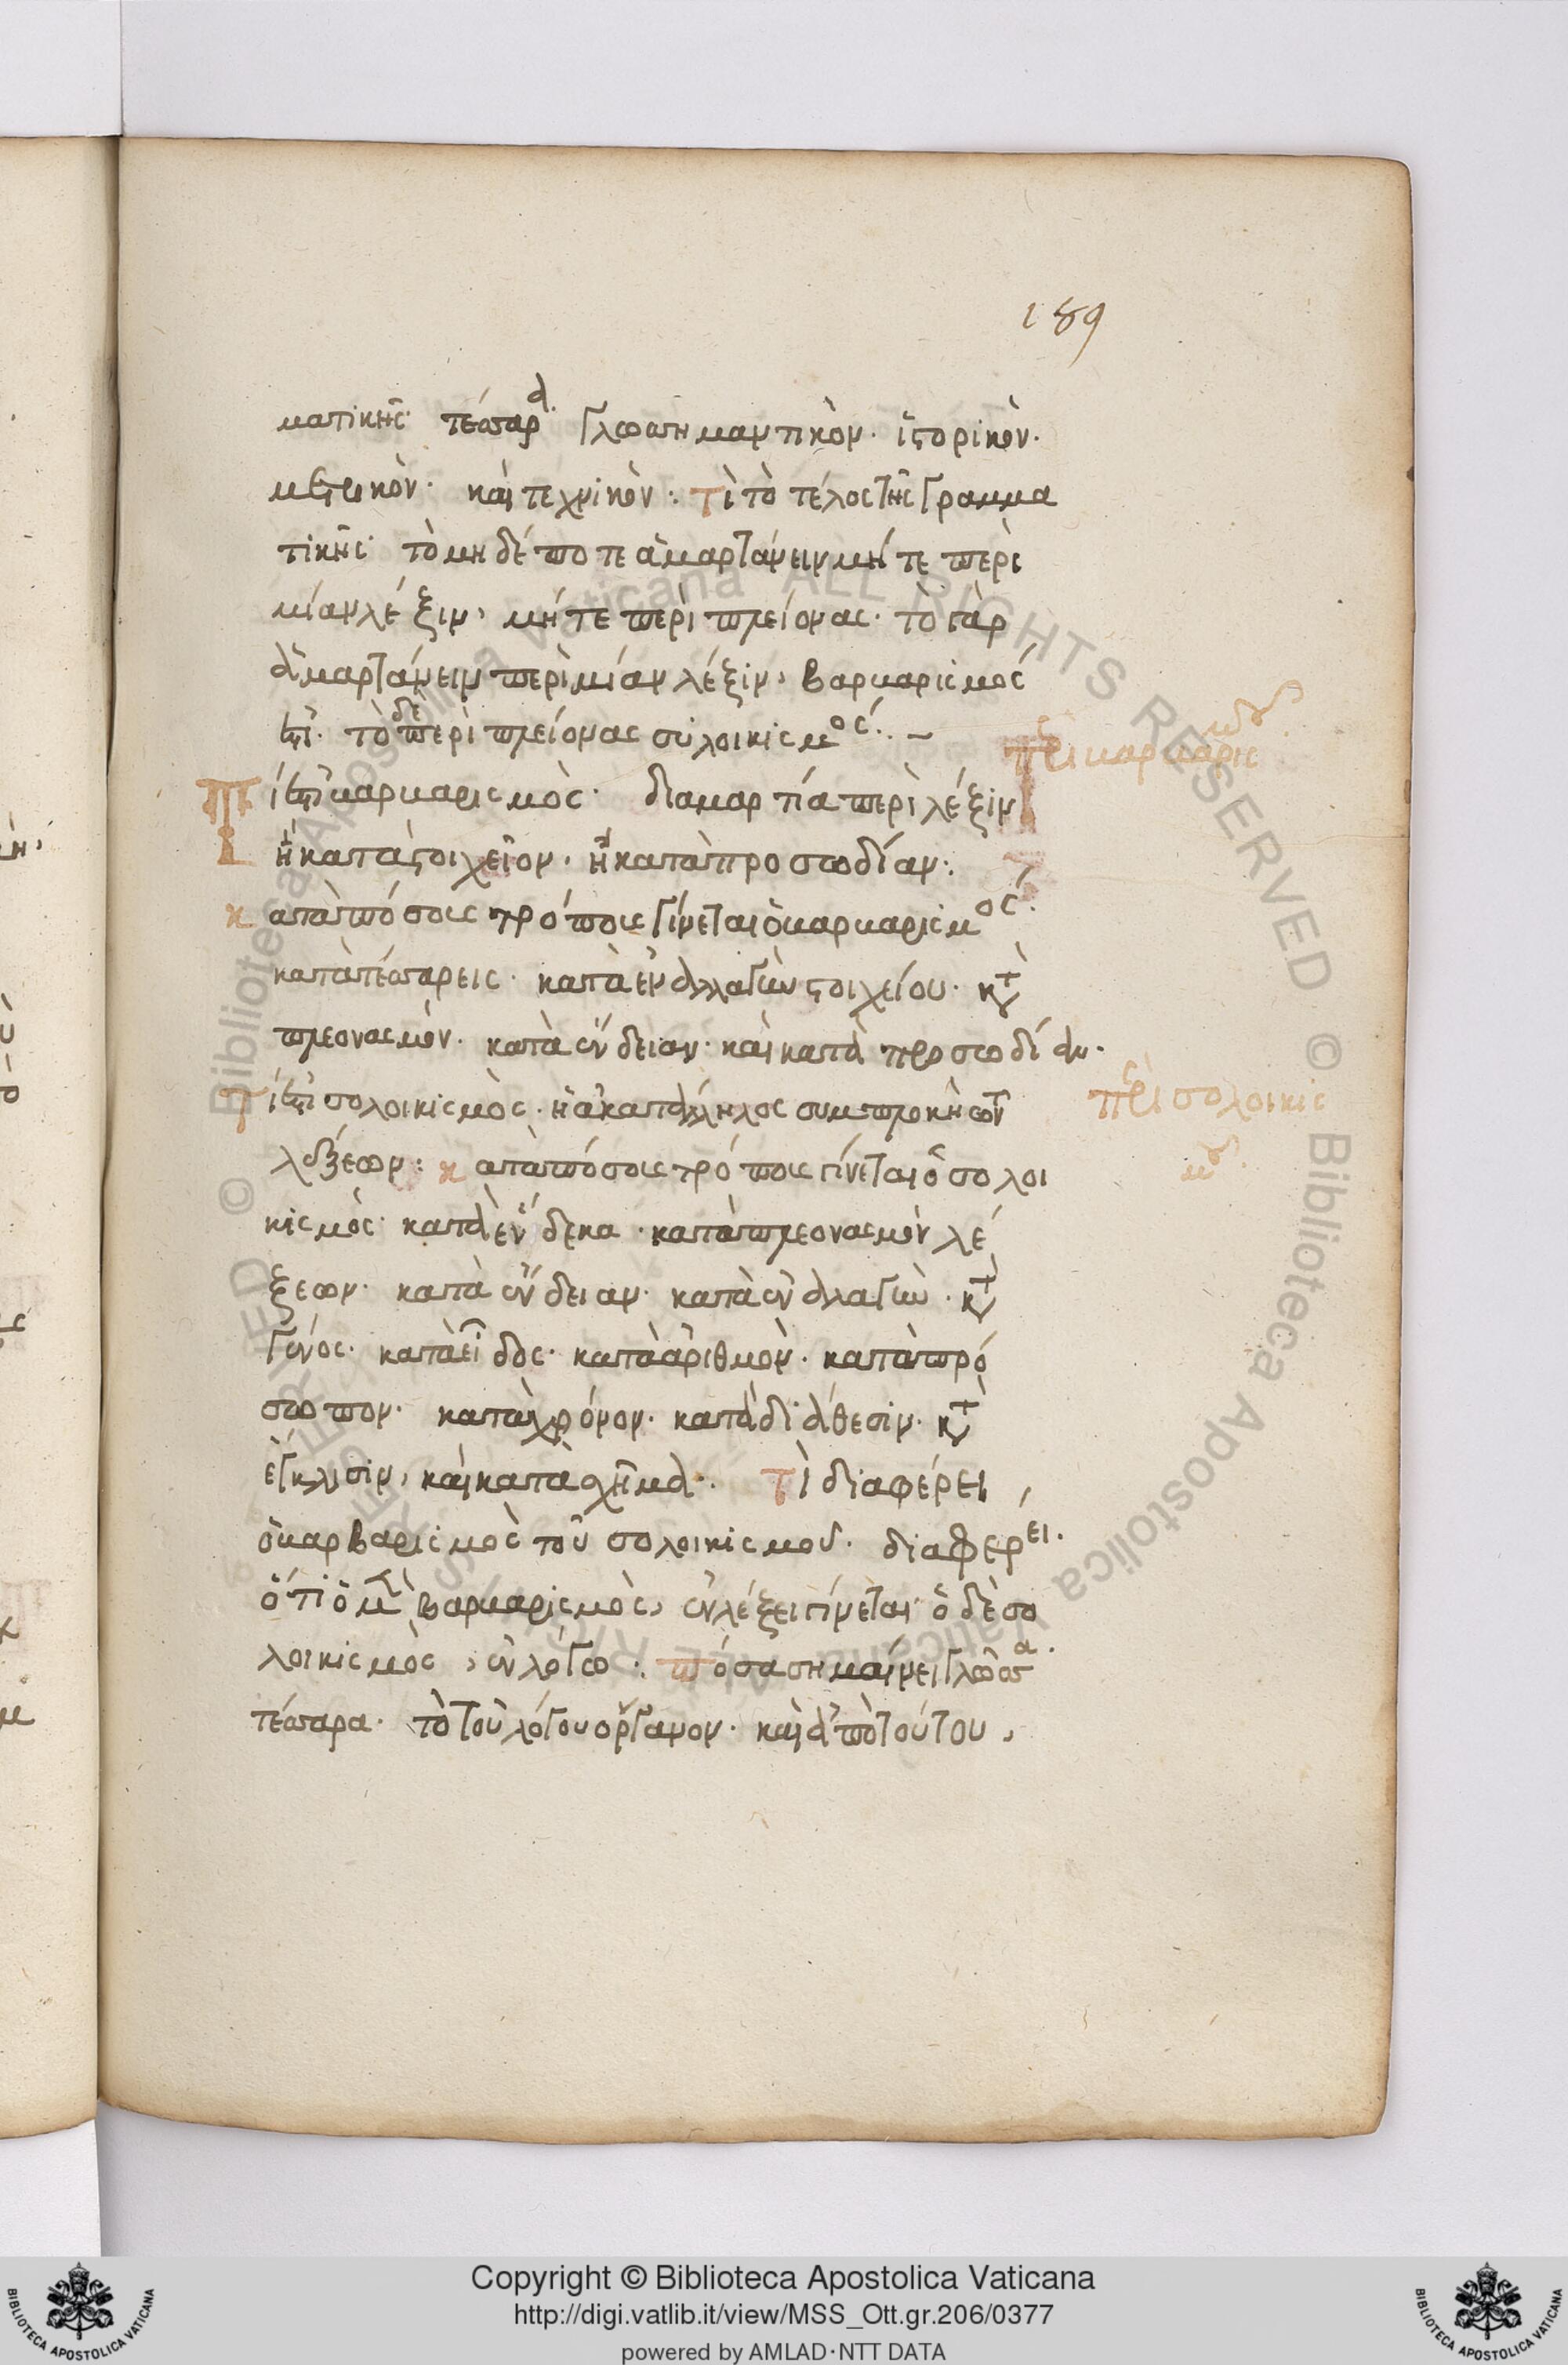 189
ματικῆς· τέσσαρα· γλωσσηματικὸν· ἱστορικὸν·
μετρικὸν· καὶ τεχνικὸν: τί τὸ τέλος τῆς γραμμα
τικῆς· τὸ μηδέποτε ἁμαρτάνειν μήτε περὶ
μίαν λέξιν, μήτε περὶ πλείονας· τὸ γὰρ
ἁμαρτάνειν περὶ μίαν λέξιν, βαρβαρισμός
ἐστι· τὸ δὲ περὶ πλείονας συλοικισμός:. ~
περὶ βαρβαρισμοῦ·
Τί ἐστι βαρβαρισμὸς· διαμαρτία περὶ λέξιν
ἢ κατὰ στοιχεῖον· ἢ κατὰ προσωδίαν:
κατὰ πόσους τρόπους γίνεται ὁ βαρβαρισμός·
κατὰ τέσσαρεις· κατὰ ἐναλλαγὴν στοιχείου· κατὰ
πλεονασμὸν· κατὰ ἔνδειαν· καὶ κατὰ προσωδίαν·
Τί ἐστι σολοικισμὸς· ἡ ἀκατάλληλος συμπλοκὴ τῶν
περὶ σολοικισμοῦ·
λέξεων: κατὰ πόσους τρόπους γίνεται ὁ σολοι
κισμὸς· κατὰ ἕνδεκα· κατὰ πλεονασμὸν λέ
ξεων· κατὰ ἔνδειαν· κατὰ ἐναλλαγὴν· κατὰ
γένος· κατὰ εἶδος· κατὰ ἀριθμὸν· κατὰ πρό
σωπον· κατὰ χρόνον· κατὰ διάθεσιν· κατὰ
ἔγκλισιν, καὶ κατὰ σχῆμα:. τί διαφέρει
ὁ βαρβαρισμὸς τοῦ σολοικισμοῦ· διαφέρει·
ὅτι ὁ μὲν βαρβαρισμὸς, ἐν λέξει γίνεται· ὁ δὲ σο
λοικισμὸς, ἐν λόγω:. πόσα σημαίνει γλῶσσα·
τέσσαρα· τὸ τοῦ λόγου ὄργανον· καὶ ἀπὸ τούτου,
© Biblioteca Apostolica Vaticana ALL RIGHTS RESERVED
Copyright © Biblioteca Apostolica Vaticana
http://digi.vatlib.it/view/MSS_Ott.gr.206/0377
powered by AMLAD·NTT DATA
BIBLIOTECA APOSTOLICA VATICANA
BIBLIOTECA APOSTOLICA VATICANA